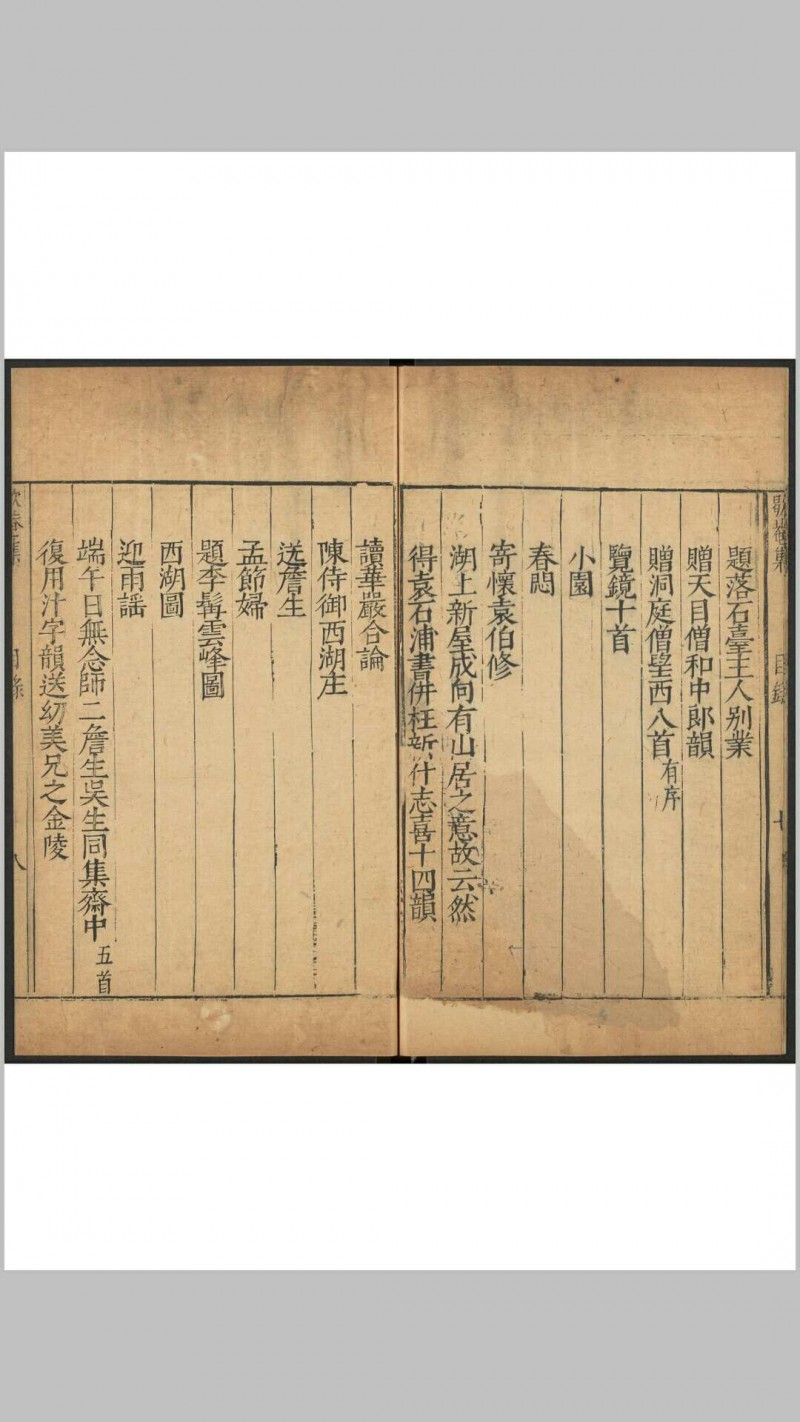 題落石臺王人别業
贈天目僧和中郎韻
贈洞庭僧望西八首有序
覽鏡十首
小園
春悶
寄懷袁伯修
湖上新屋成向有山居之意故云然
得袁石浦書併枉新什志喜十四韻
讀華嚴合論
陳侍御西湖庄
送詹生
孟節婦
題李髯雲峰圖
西湖圖
迎雨謡
端午日無念師二詹生吳生同集齋中五首
復用汁字韻送幼美兄之金陵
目錄
八